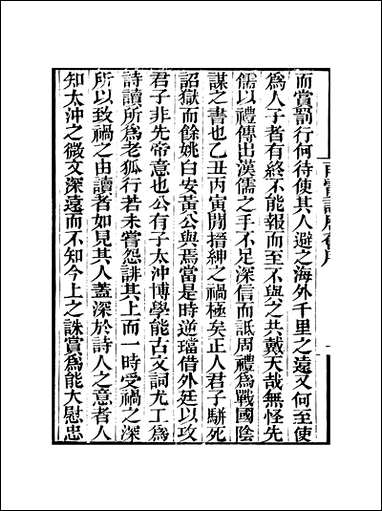 而賞罰行何待使其人避之海外千里之遠又何至使
爲人子者有終不能報而至不與之共戴天哉無怪先
儒以禮傳出漢儒之手不足深信而詆周禮爲戰國陰
謀之書也乙丑丙寅閒搢紳之禍極矣正人君子駢死
詔獄而餘姚白安黃公與焉當是時逆璫借外廷以攻
君子非先帝意也公有子太沖博學能古文詞尤工爲
詩讀所爲老狐行若未嘗怨誹其上而一時受禍之深
所以致禍之由讀者如見其人蓋深於詩人之意者人
知太沖之微文深遠而不知今上之誅賞爲能大慰忠
序